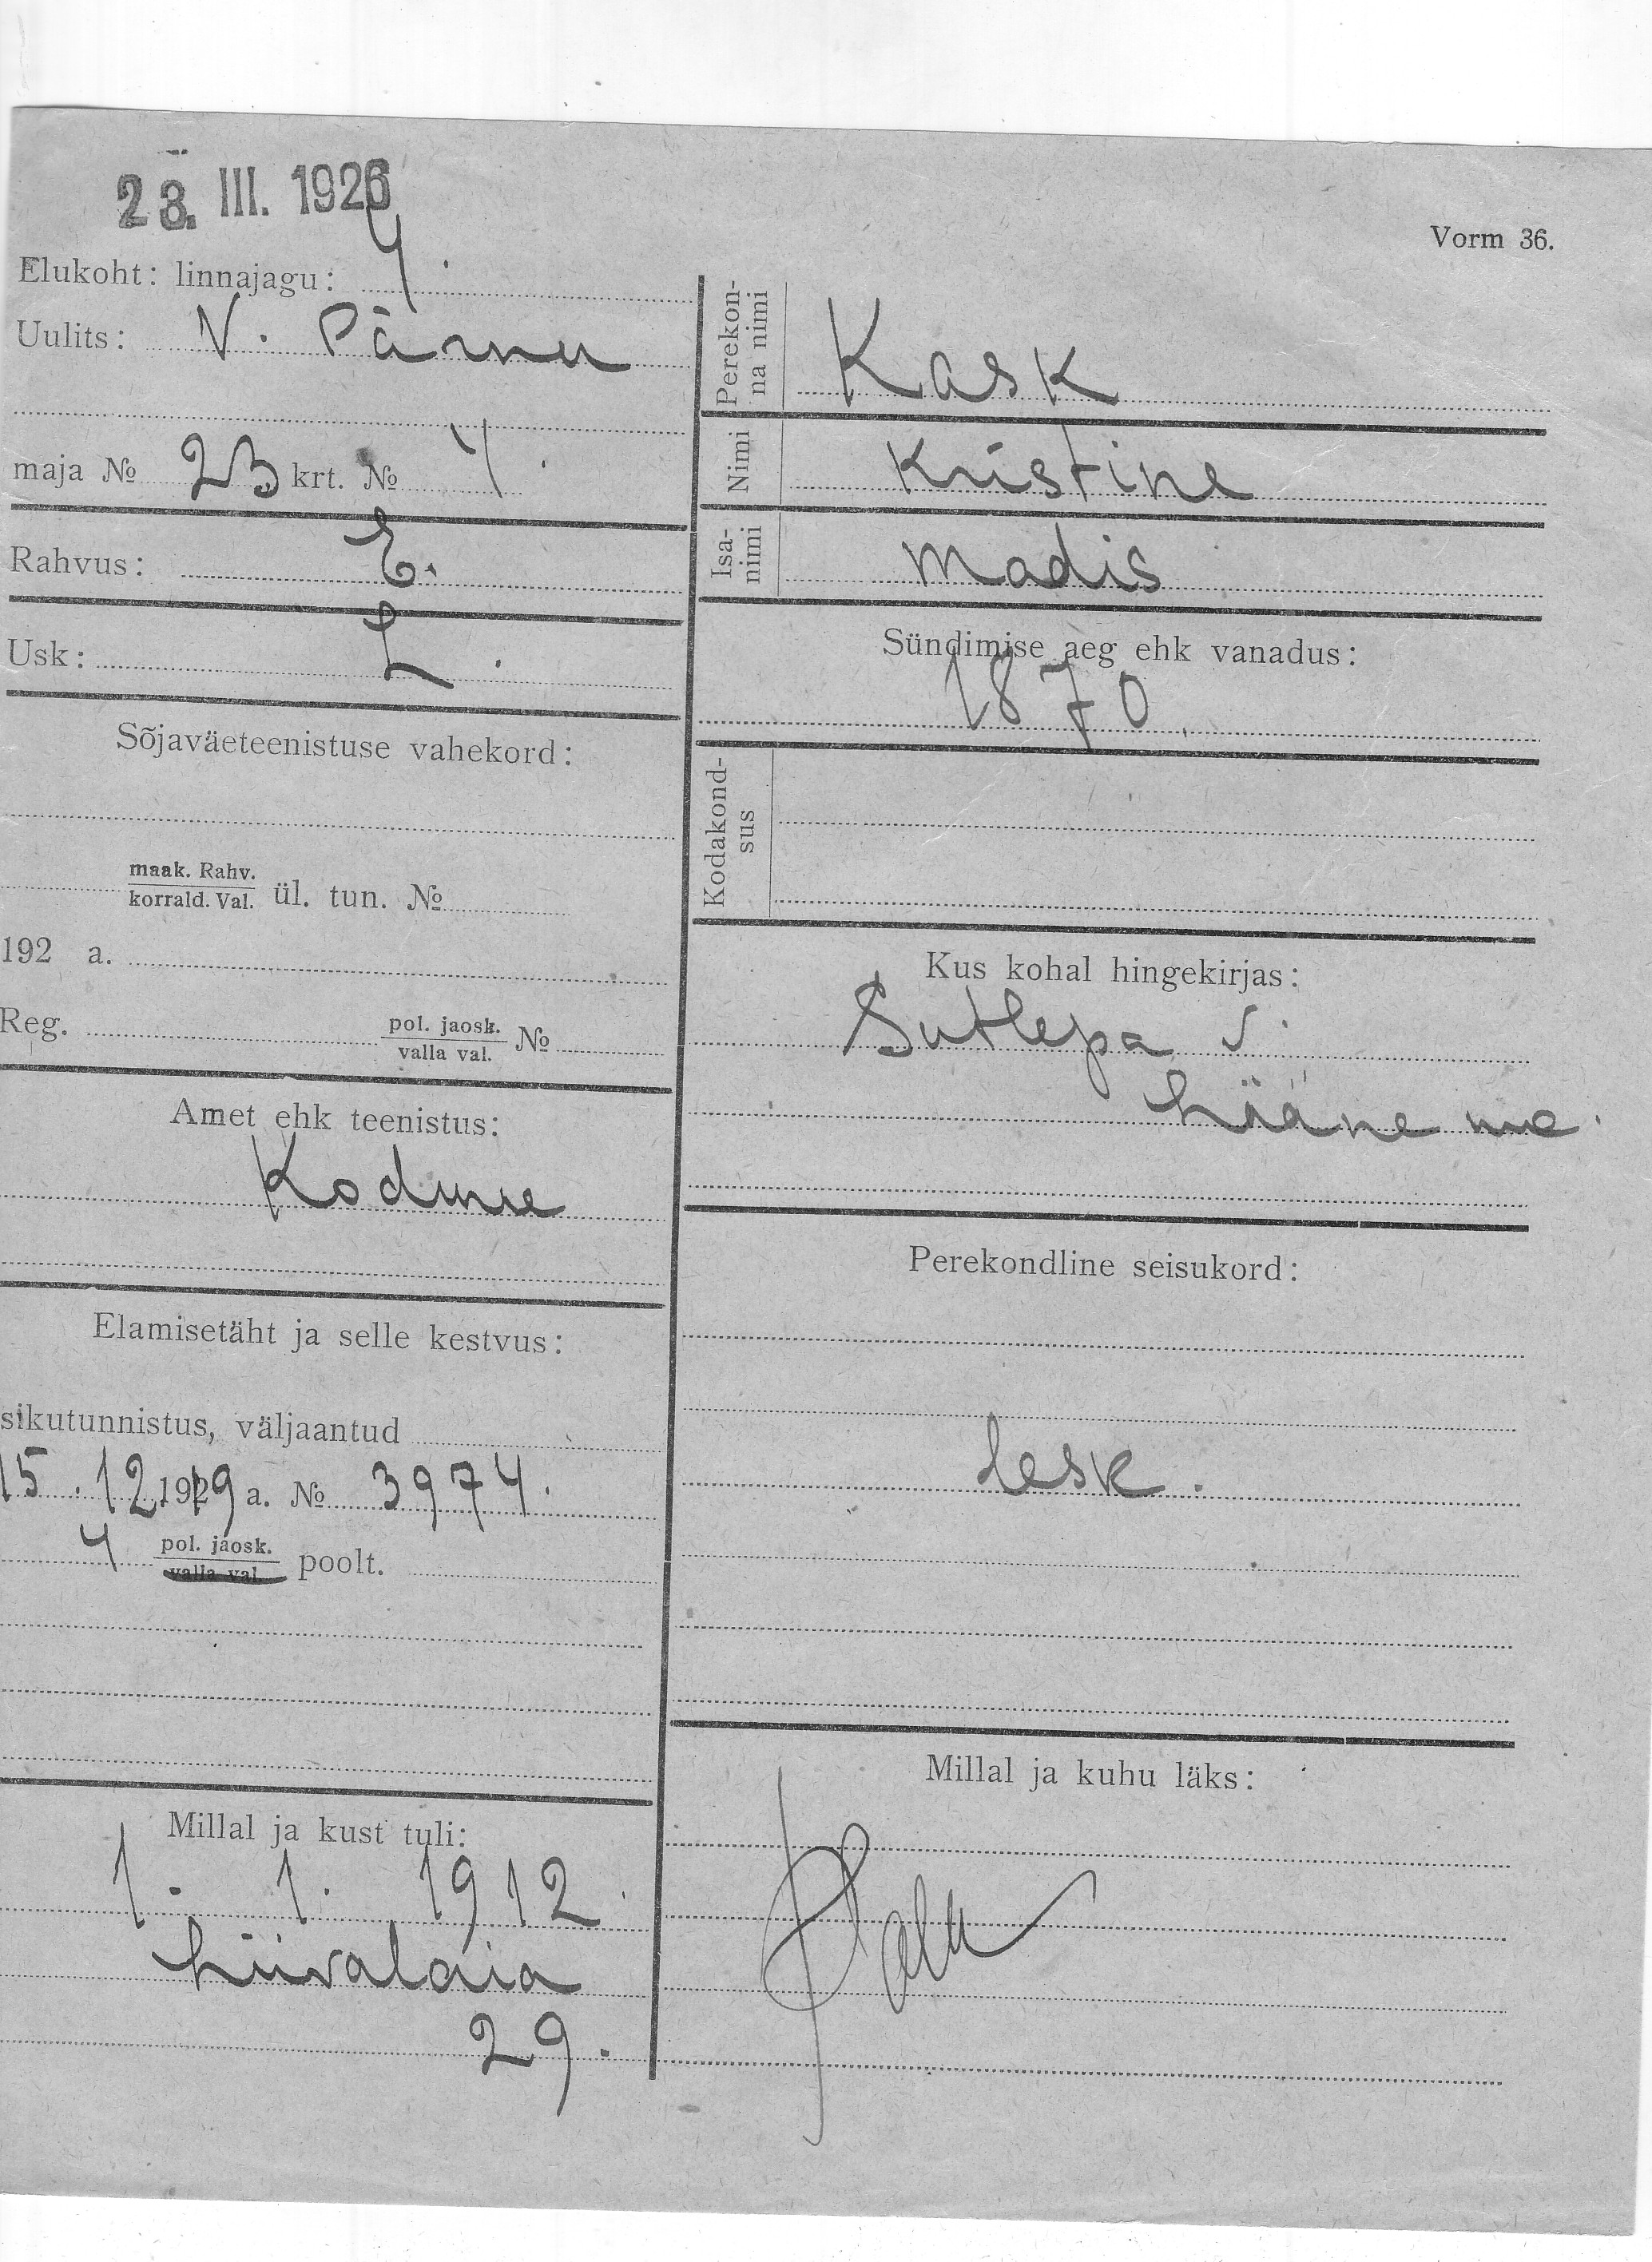 23. III. 1926
Vorm 36.
Elukoht: linnajagu: 4.
Uulits: V. Pärnu
maja № 23 krt. № 4.
Rahvus: E.
Usk: L.
Sõjaväeteenistuse vahekord:
maak. Rahv.
korrald. Val. ül. tun. №
192 a.
Reg. pol. jaosk.
valla val. №
Amet ehk teenistus:
Kodune
Elamisetäht ja selle kestvus:
sikutunnistus, väljaantud
15. 12. 1919 a. № 3974.
4 pol. jaosk.
valla val. poolt.
Millal ja kust tuli:
1. 1. 1912.
Liivalaia
29.
Perekon-
na nimi
Kask
Nimi Kristine
Isa-
nimi
Madis
Sündimise aeg ehk vanadus:
1870.
Kodakond-
sus
Kus kohal hingekirjas:
Sutlepa v.
Lääne ma.
Perekondline seisukord:
lesk.
Millal ja kuhu läks: